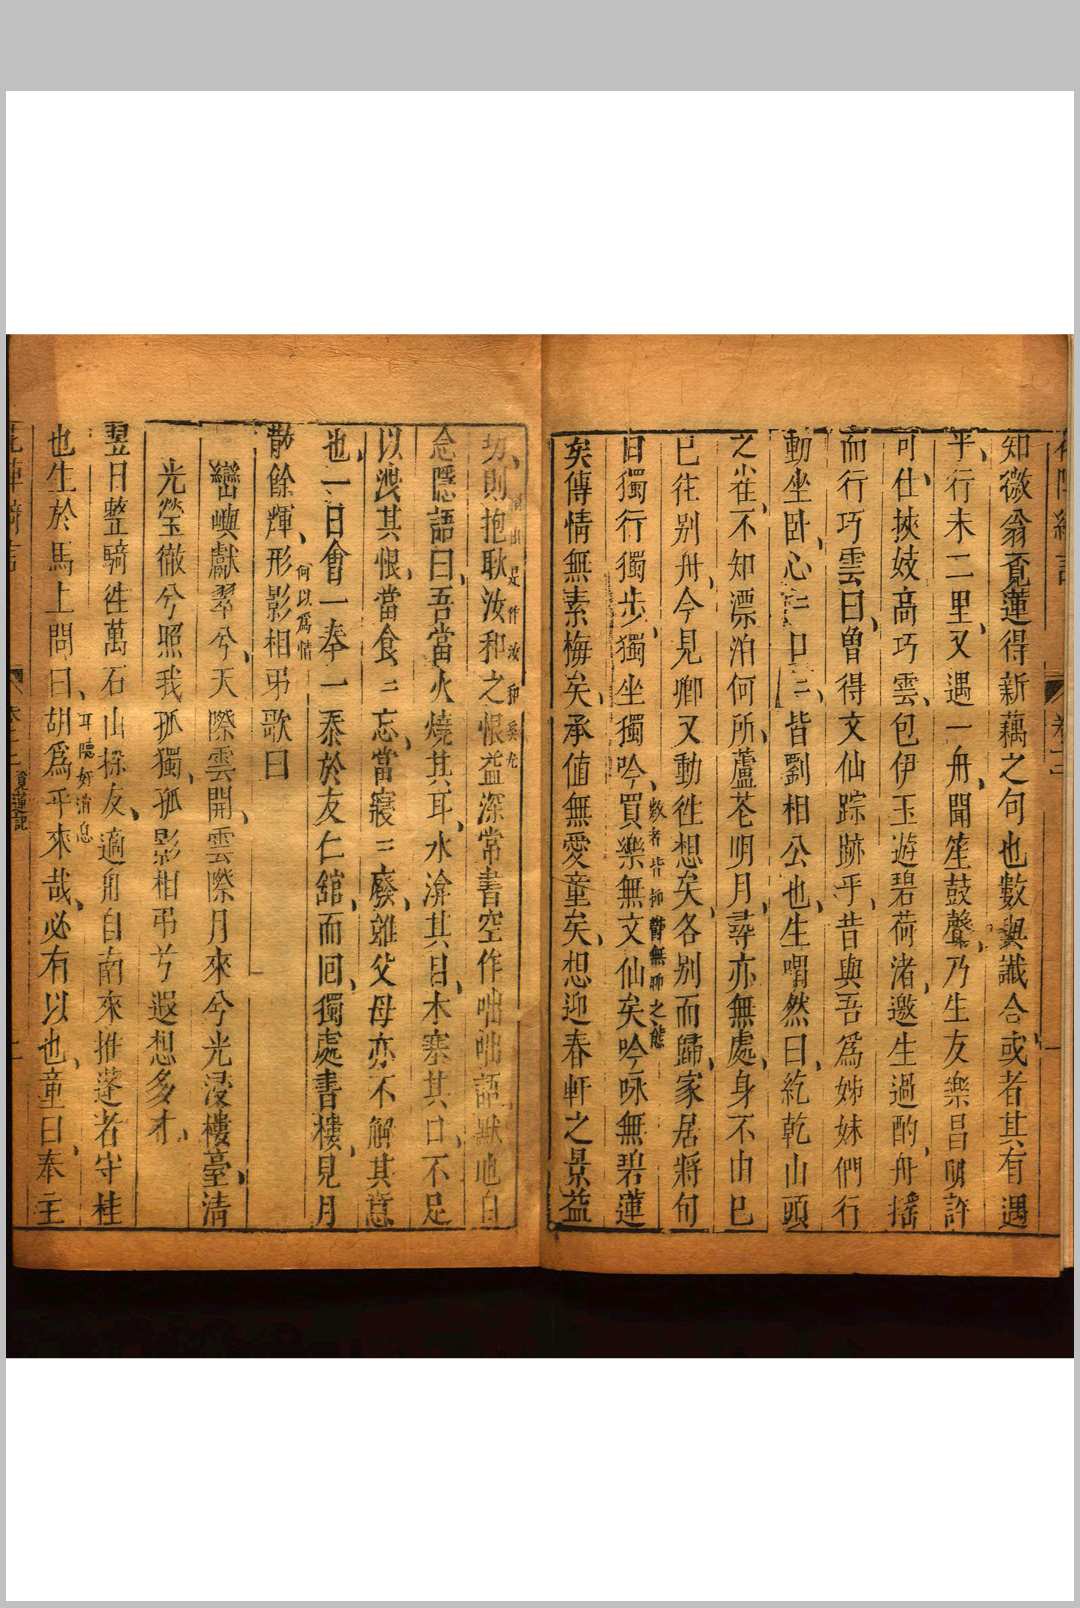 卷二
知微翁覔蓮得新藕之句也數與讖合或者其有遇
乎行未二里又遇一舟聞笙鼓聲乃生友樂昌明許
可仕挾妓高巧雲包伊玉遊碧荷渚邀生過酌舟搖
而行巧雲曰曾得文仙踪跡乎昔與吾爲姊妹們行
動坐卧心二口二皆劉相公也生喟然曰紇乾山頭
之雀不知漂泊何所蘆花明月尋亦無處身不由已
已往别舟今見卿又動徃想矣各别而歸家居將句
日獨行獨步獨坐獨吟買樂無文仙矣吟咏無碧蓮
數者皆抑鬱無聊之態
矣傳情無素梅矣承值無愛童矣想迎春軒之景益
切則抱耿汝和之恨益深常書空作咄咄語獸地自
念隱語曰吾當火燒其耳水渰其目木塞其口不足
以洩其恨當食二忘當寢三廢雖父母亦不解其意
也一日會一奉一泰於友仁舘而回獨處書樓見月
散餘輝形影相弔歌曰
何以爲情
巒嶼獻翠兮天際雲開雲際月來兮光浸樓臺清
光瑩徹兮照我孤獨孤影相弔兮遐想多才
翌日整騎徃萬石山探友適舟自南來推蓬者守桂
耳隱好消息
也生於馬上問曰胡爲乎來哉必有以也童曰奉主
覓蓮記